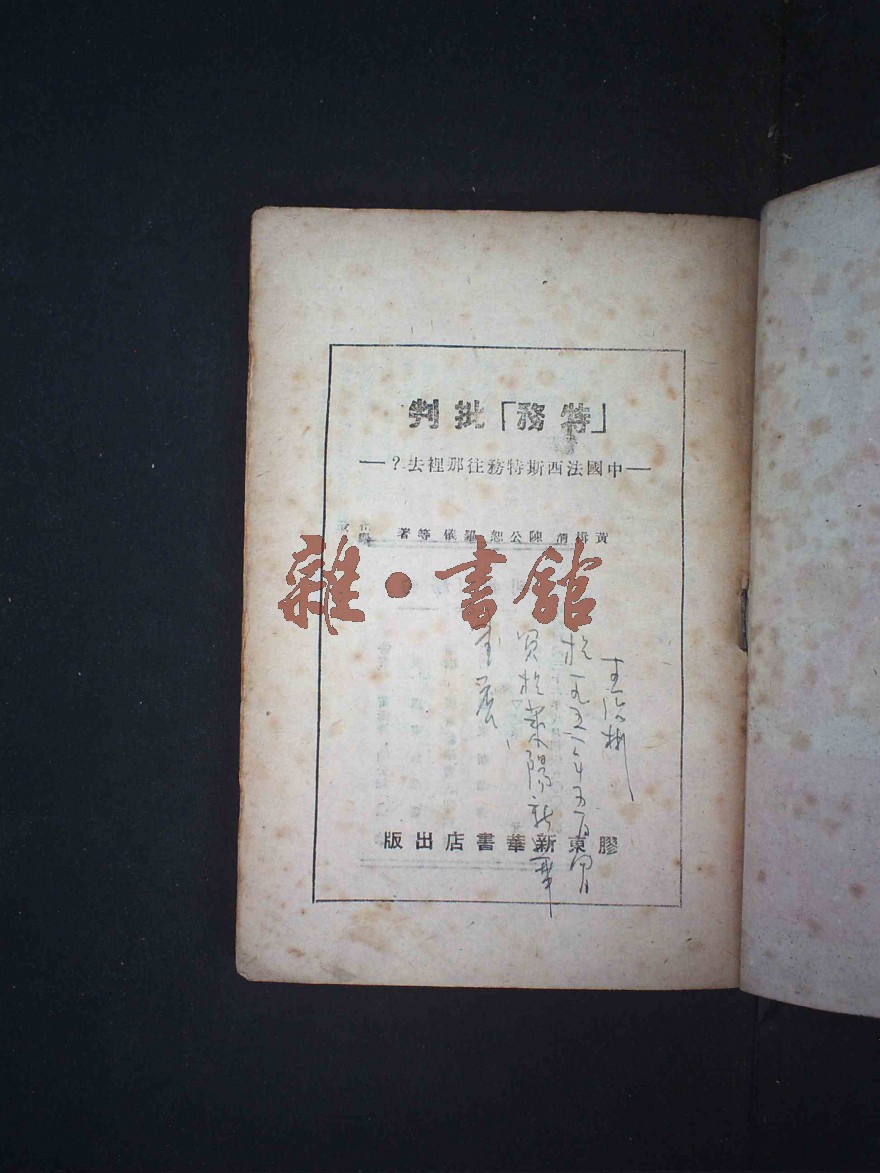 「特務」批判
—中國法西斯特務往那裡去?—
黃 陳公恕 羅 等著
雜·書館
於一九五一年五月買
買於萊陽新華
書店
膠東新華書店出版